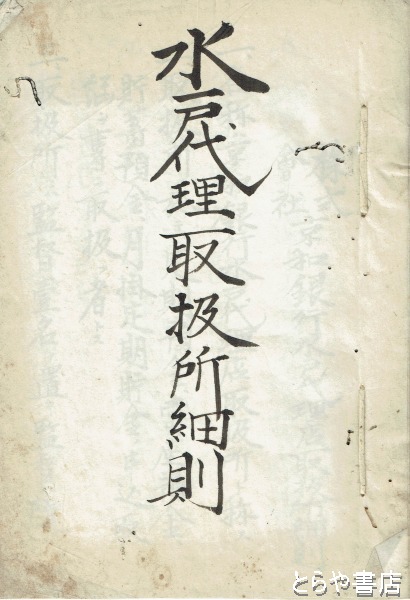 水戸代理取扱所細則
とらや書店